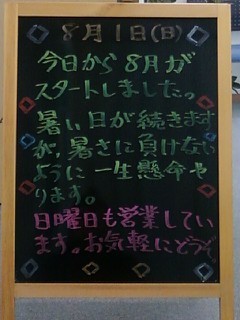 8月1日(日)
今日から8月が
スタートしました。
暑い日が続きます
が、暑さに負けない
ように一生懸命や
ります。
日曜日も営業してい
ます。お気軽にどうぞ。